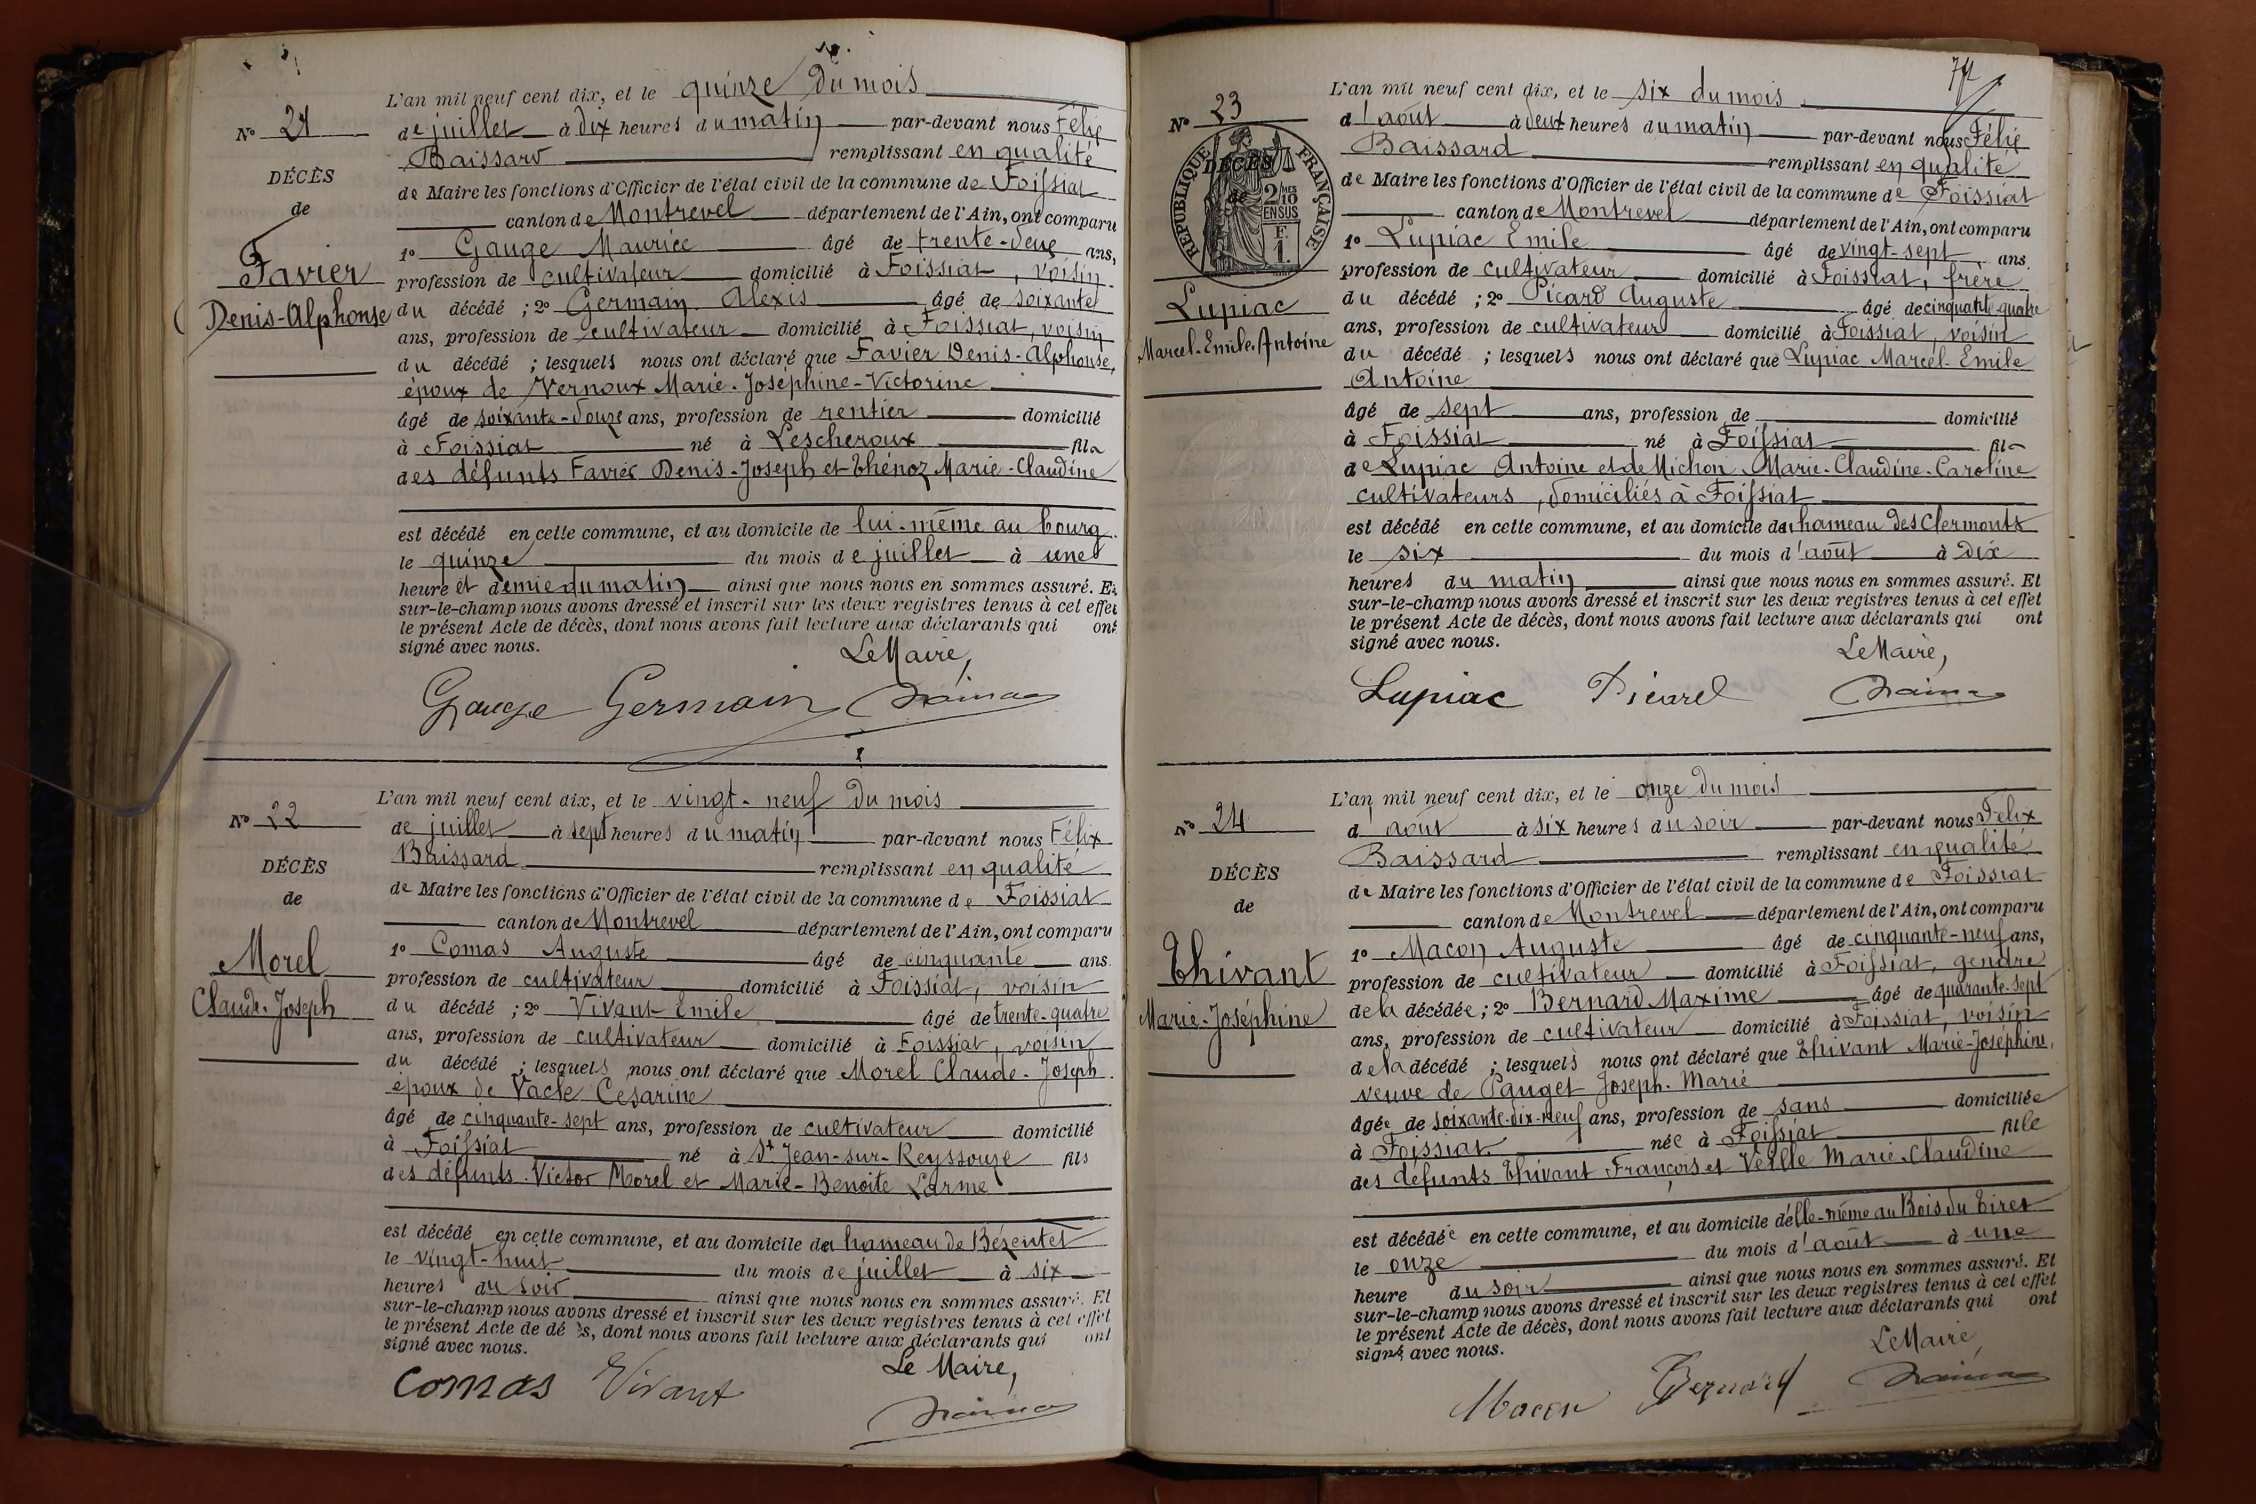 L'an mil neuf cent dix, et le quinze du mois
N° 21
de juillet à dix heures du matin par-devant nous Félix
Baissard remplissant en qualité
DÉCÈS
de Maire les fonctions d'Officier de l'état civil de la commune de Foissiat
de
canton de Montrevel département de l'Ain, ont comparu
1° Gauge Maurice âgé de trente-deux ans,
Favier
profession de cultivateur domicilié à Foissiat, voisin
Denis-Alphonse
du décédé ; 2° Germain Alexis âgé de soixante
ans, profession de cultivateur domicilié à Foissiat, voisin
du décédé ; lesquels nous ont déclaré que Favier Denis-Alphonse,
époux de Vernoux Marie-Joséphine-Victorine
âgé de soixante-douze ans, profession de rentier domicilié
à Foissiat né à Lescheroux fils
des défunts Favier Denis-Joseph et Thénoz Marie-Claudine
est décédé en cette commune, et au domicile de lui-même au bourg
le quinze du mois de juillet à une
heure et demie du matin ainsi que nous nous en sommes assuré. Et
sur-le-champ nous avons dressé et inscrit sur les deux registres tenus à cet effet
le présent Acte de décès, dont nous avons fait lecture aux déclarants qui ont
signé avec nous.
Le Maire,
Gauge Germain
L'an mil neuf cent dix, et le vingt-neuf du mois
N° 22
de juillet à sept heures du matin par-devant nous Félix
Baissard remplissant en qualité
DÉCÈS
de Maire les fonctions d'Officier de l'état civil de la commune de Foissiat
de
canton de Montrevel département de l'Ain, ont comparu
1° Comas Auguste âgé de cinquante ans
Morel
profession de cultivateur domicilié à Foissiat, voisin
Claude-Joseph
du décédé ; 2° Vivant Emile âgé de trente-quatre
ans, profession de cultivateur domicilié à Foissiat, voisin
du décédé ; lesquels nous ont déclaré que Morel Claude-Joseph
époux de Vacle Cesarine
âgé de cinquante-sept ans, profession de cultivateur domicilié
à Foissiat né à St Jean-sur-Reyssouze fils
des défunts Victor Morel et Marie-Benoite Larme
est décédé en cette commune, et au domicile du hameau de Bézentet
le vingt-huit du mois de juillet à six
heures du soir ainsi que nous nous en sommes assuré. Et
sur-le-champ nous avons dressé et inscrit sur les deux registres tenus à cet effet
le présent Acte de dé s, dont nous avons fait lecture aux déclarants qui ont
signé avec nous.
Le Maire,
Comas Vivant
L'an mil neuf cent dix, et le six du mois
N° 23
d'août à deux heures du matin par-devant nous Félix
Baissard remplissant en qualité
RÉPUBLIQUE FRANÇAISE
DÉCÈS
de
2/10 MES
EN SUS
F.
1.
de Maire les fonctions d'Officier de l'état civil de la commune de Foissiat
canton de Montrevel département de l'Ain, ont comparu
1° Lupiac Emile âgé de vingt-sept ans
profession de cultivateur domicilié à Foissiat, frère
Lupiac
du décédé ; 2° Picard Auguste âgé de cinquante quatre
Marcel-Emile-Antoine
ans, profession de cultivateur domicilié à Foissiat, voisin
du décédé ; lesquels nous ont déclaré que Lupiac Marcel-Emile
Antoine
âgé de sept ans, profession de domicilié
à Foissiat né à Foissiat fils
de Lupiac Antoine et de Michon Marie-Claudine-Caroline
cultivateurs, domiciliés à Foissiat
est décédé en cette commune, et au domicile du hameau des Clermonts
le six du mois d'août à dix
heures du matin ainsi que nous nous en sommes assuré. Et
sur-le-champ nous avons dressé et inscrit sur les deux registres tenus à cet effet
le présent Acte de décès, dont nous avons fait lecture aux déclarants qui ont
signé avec nous.
Le Maire,
Lupiac Picard
L'an mil neuf cent dix, et le onze du mois
N° 24
d'août à six heures du soir par-devant nous Félix
Baissard remplissant en qualité
DÉCÈS
de Maire les fonctions d'Officier de l'état civil de la commune de Foissiat
de
canton de Montrevel département de l'Ain, ont comparu
1° Macon Auguste âgé de cinquante-neuf ans,
Thivant
profession de cultivateur domicilié à Foissiat, gendre
Marie-Joséphine
de la décédée ; 2° Bernard Maxime âgé de quarante-sept
ans, profession de cultivateur domicilié à Foissiat, voisin
de la décédé ; lesquels nous ont déclaré que Thivant Marie-Joséphine,
veuve de Pauget Joseph-Marie
âgée de soixante-dix-neuf ans, profession de sans domiciliée
à Foissiat née à Foissiat fille
des défunts Thivant François et Veille Marie-Claudine
est décédée en cette commune, et au domicile d'elle-même au Bois du Tiret
le onze du mois d'août à une
heure du soir ainsi que nous nous en sommes assuré. Et
sur-le-champ nous avons dressé et inscrit sur les deux registres tenus à cet effet
le présent Acte de décès, dont nous avons fait lecture aux déclarants qui ont
signé avec nous.
Le Maire,
Macon Bernard